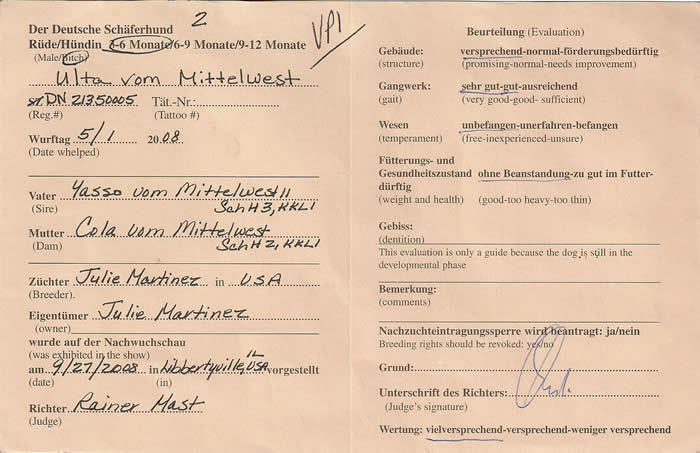 2
VP1
Der Deutsche Schäferhund
Rüde/Hündin 3-6 Monate/6-9 Monate/9-12 Monate
(Male/Bitch)
Ulta vom Mittelwest
DN 21350005 Tät.-Nr.:
(Reg.#) (Tattoo #)
Wurftag 5/1 2008
(Date whelped)
Vater Yasso vom Mittelwest
(Sire) SchH3, KKL1
Mutter Cola vom Mittelwest
(Dam) SchH2, KKL1
Züchter Julie Martinez in USA
(Breeder).
Eigentümer Julie Martinez
(owner)
wurde auf der Nachwuchschau
(was exhibited in the show)
IL
am 9/27/2008 in Libbertyville, USA vorgestellt
(date) (in)
Richter Rainer Mast
(Judge)
Beurteilung (Evaluation)
Gebäude: versprechend-normal-förderungsbedürftig
(structure) (promising-normal-needs improvement)
Gangwerk: sehr gut-gut-ausreichend
(gait) (very good-good- sufficient)
Wesen unbefangen-unerfahren-befangen
(temperament) (free-inexperienced-unsure)
Fütterungs- und
Gesundheitszustand ohne Beanstandung-zu gut im Futter-
dürftig
(weight and health) (good-too heavy-too thin)
Gebiss:
(dentition)
This evaluation is only a guide because the dog is still in the
developmental phase
Bemerkung:
(comments)
Nachzuchteintragungssperre wird beantragt: ja/nein
Breeding rights should be revoked: yes/no
Grund:
Unterschrift des Richters:
(Judge's signature)
Wertung: vielversprechend-versprechend-weniger versprechend